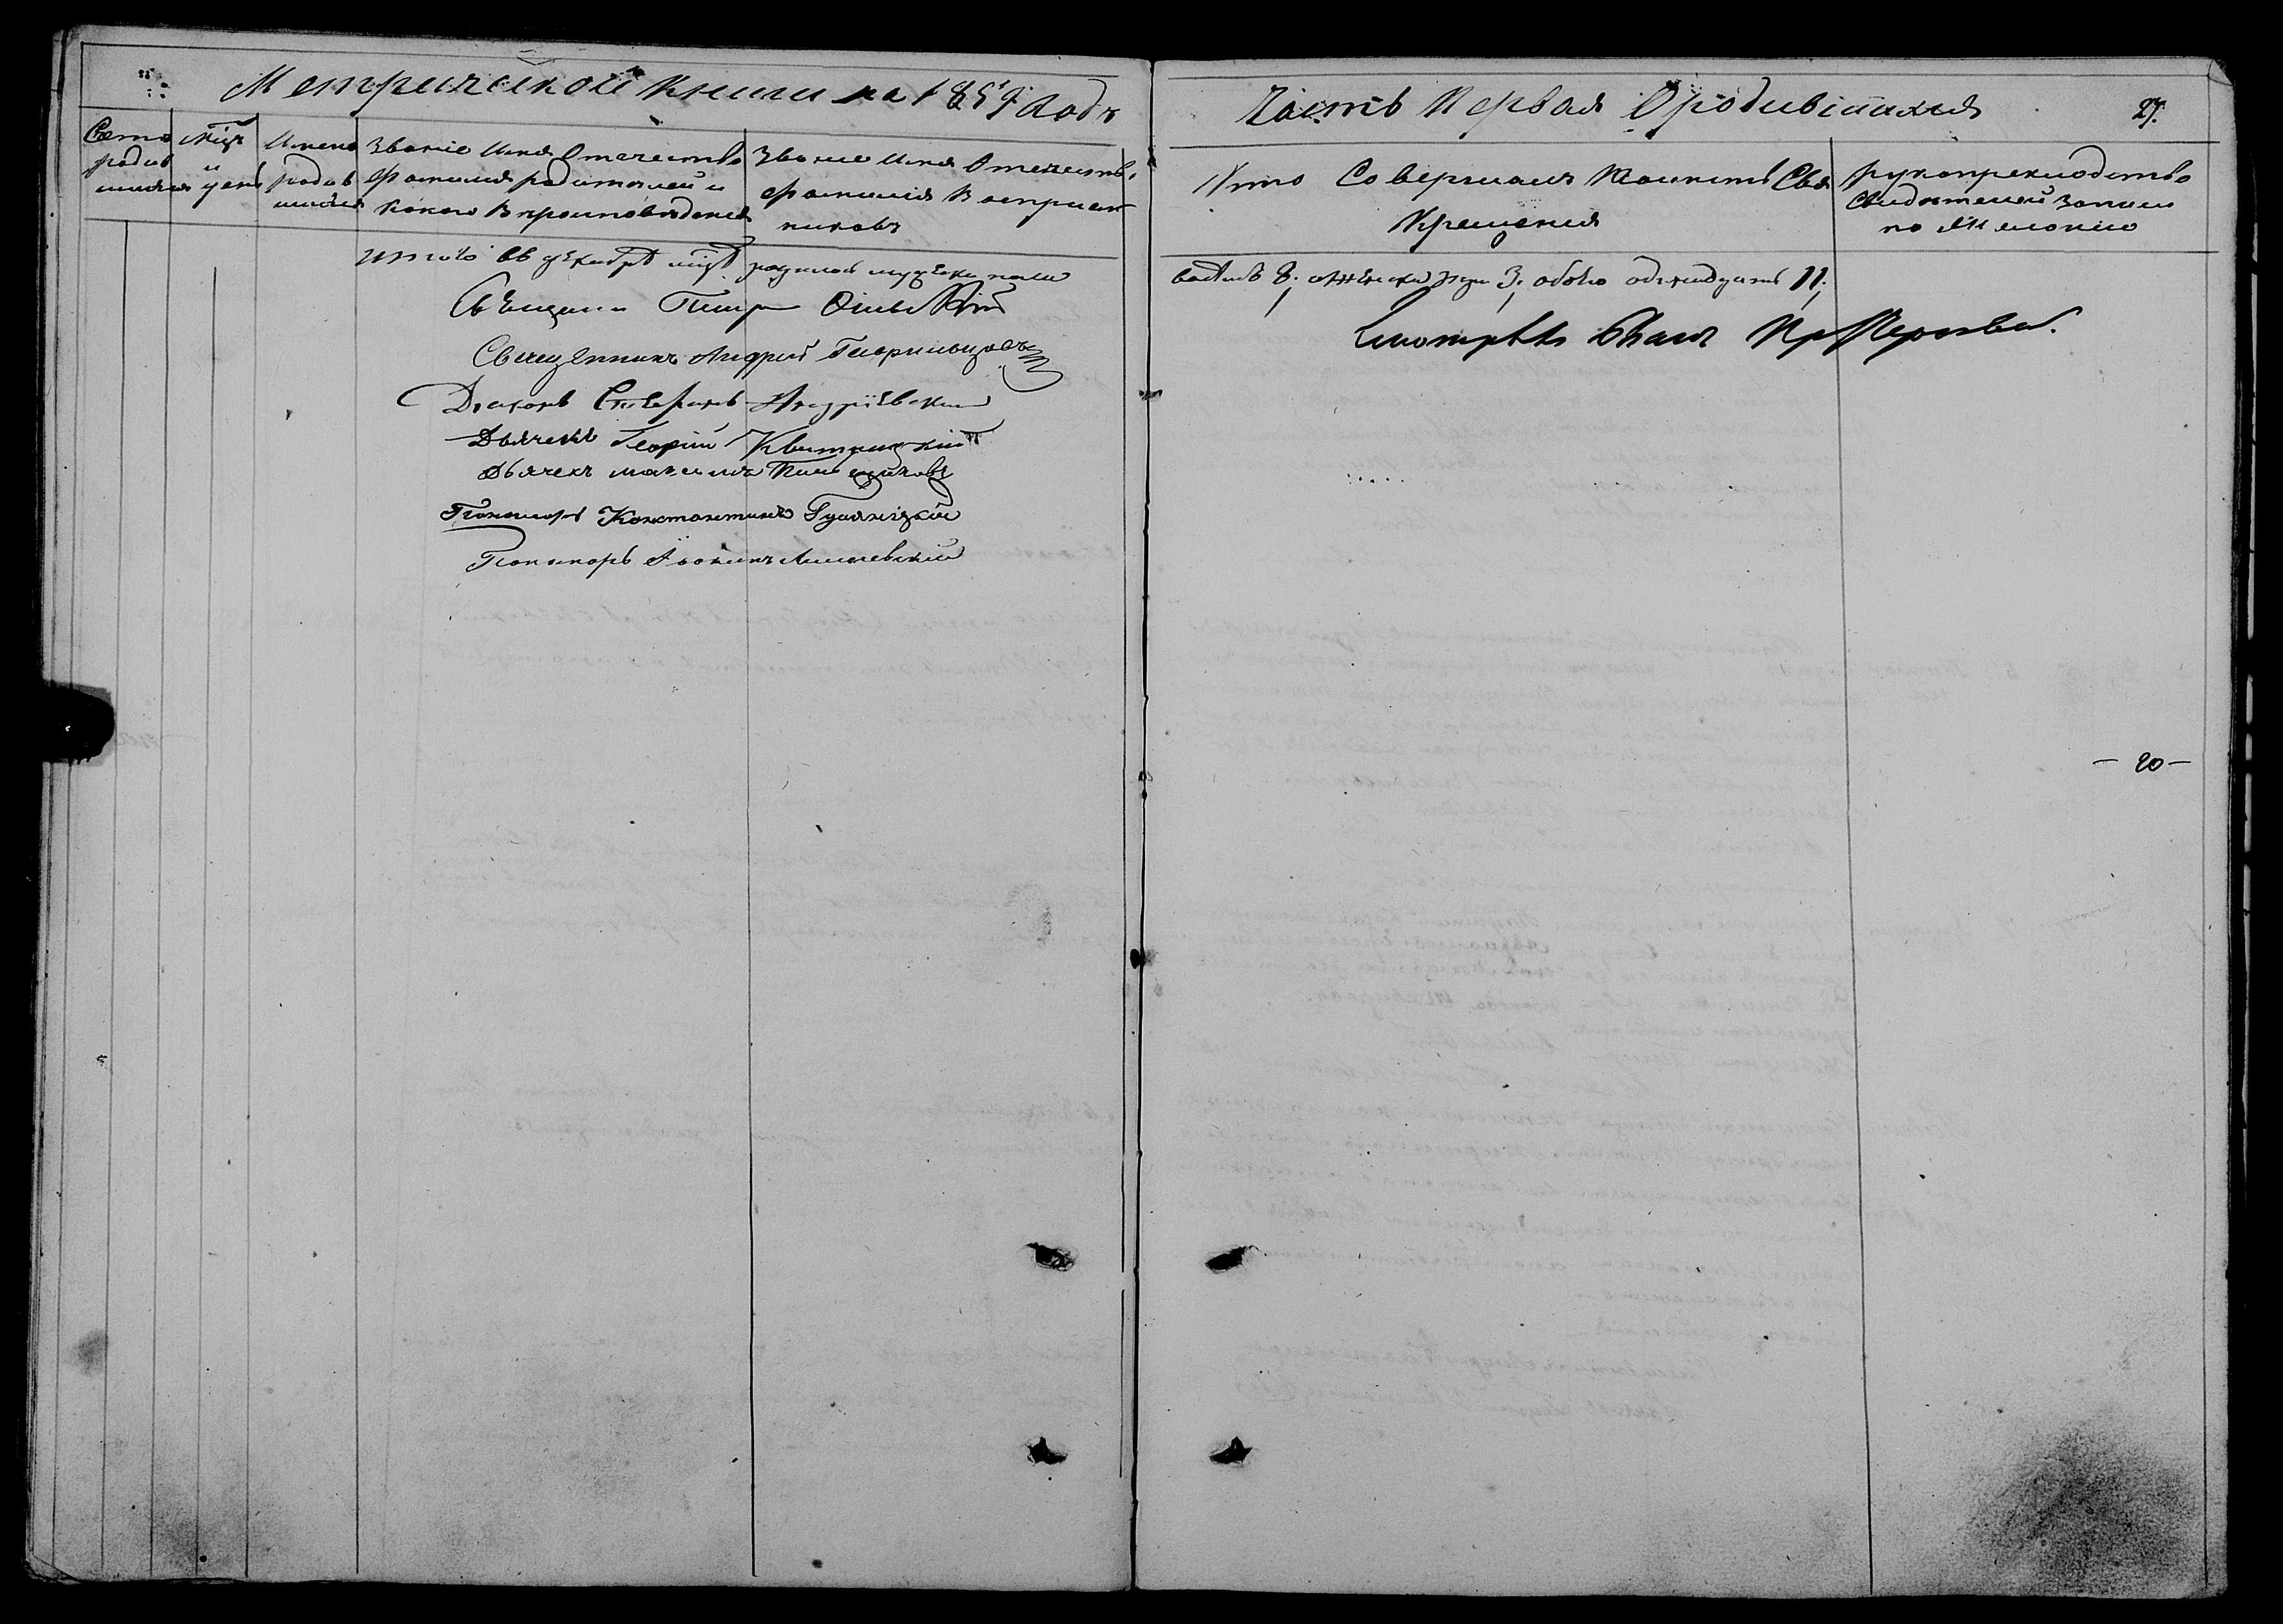 Метрической книги на 1859 Годъ
Часть Первая О родившихся
27.
Счетъ родив шихся
Мцъ и день
Имена родив шихся
Званіе Имя Отечество Фамилія родителей и какого Вѣроисповѣданія
Званіе Имя Отечество, Фамилія Воспріем никовъ
Кто Совершалъ Таинство Свя Крещенія
рукоприкладство Свидѣтелей записи по желанію
Итого Въ декабрѣ мцѣ родилось мужеска пола
восемь 8; а женска три 3; обоего одинадцать 11;
Священни Петръ
Священникъ Андрей
Діаконъ Стефанъ Андріевскій
Дьячекъ Георгій Квитницкій
Дьячекъ Максимъ
Пономарь Константинъ
Пономарь Іоакимъ
Смотрѣлъ Благ Пр
— 20 —